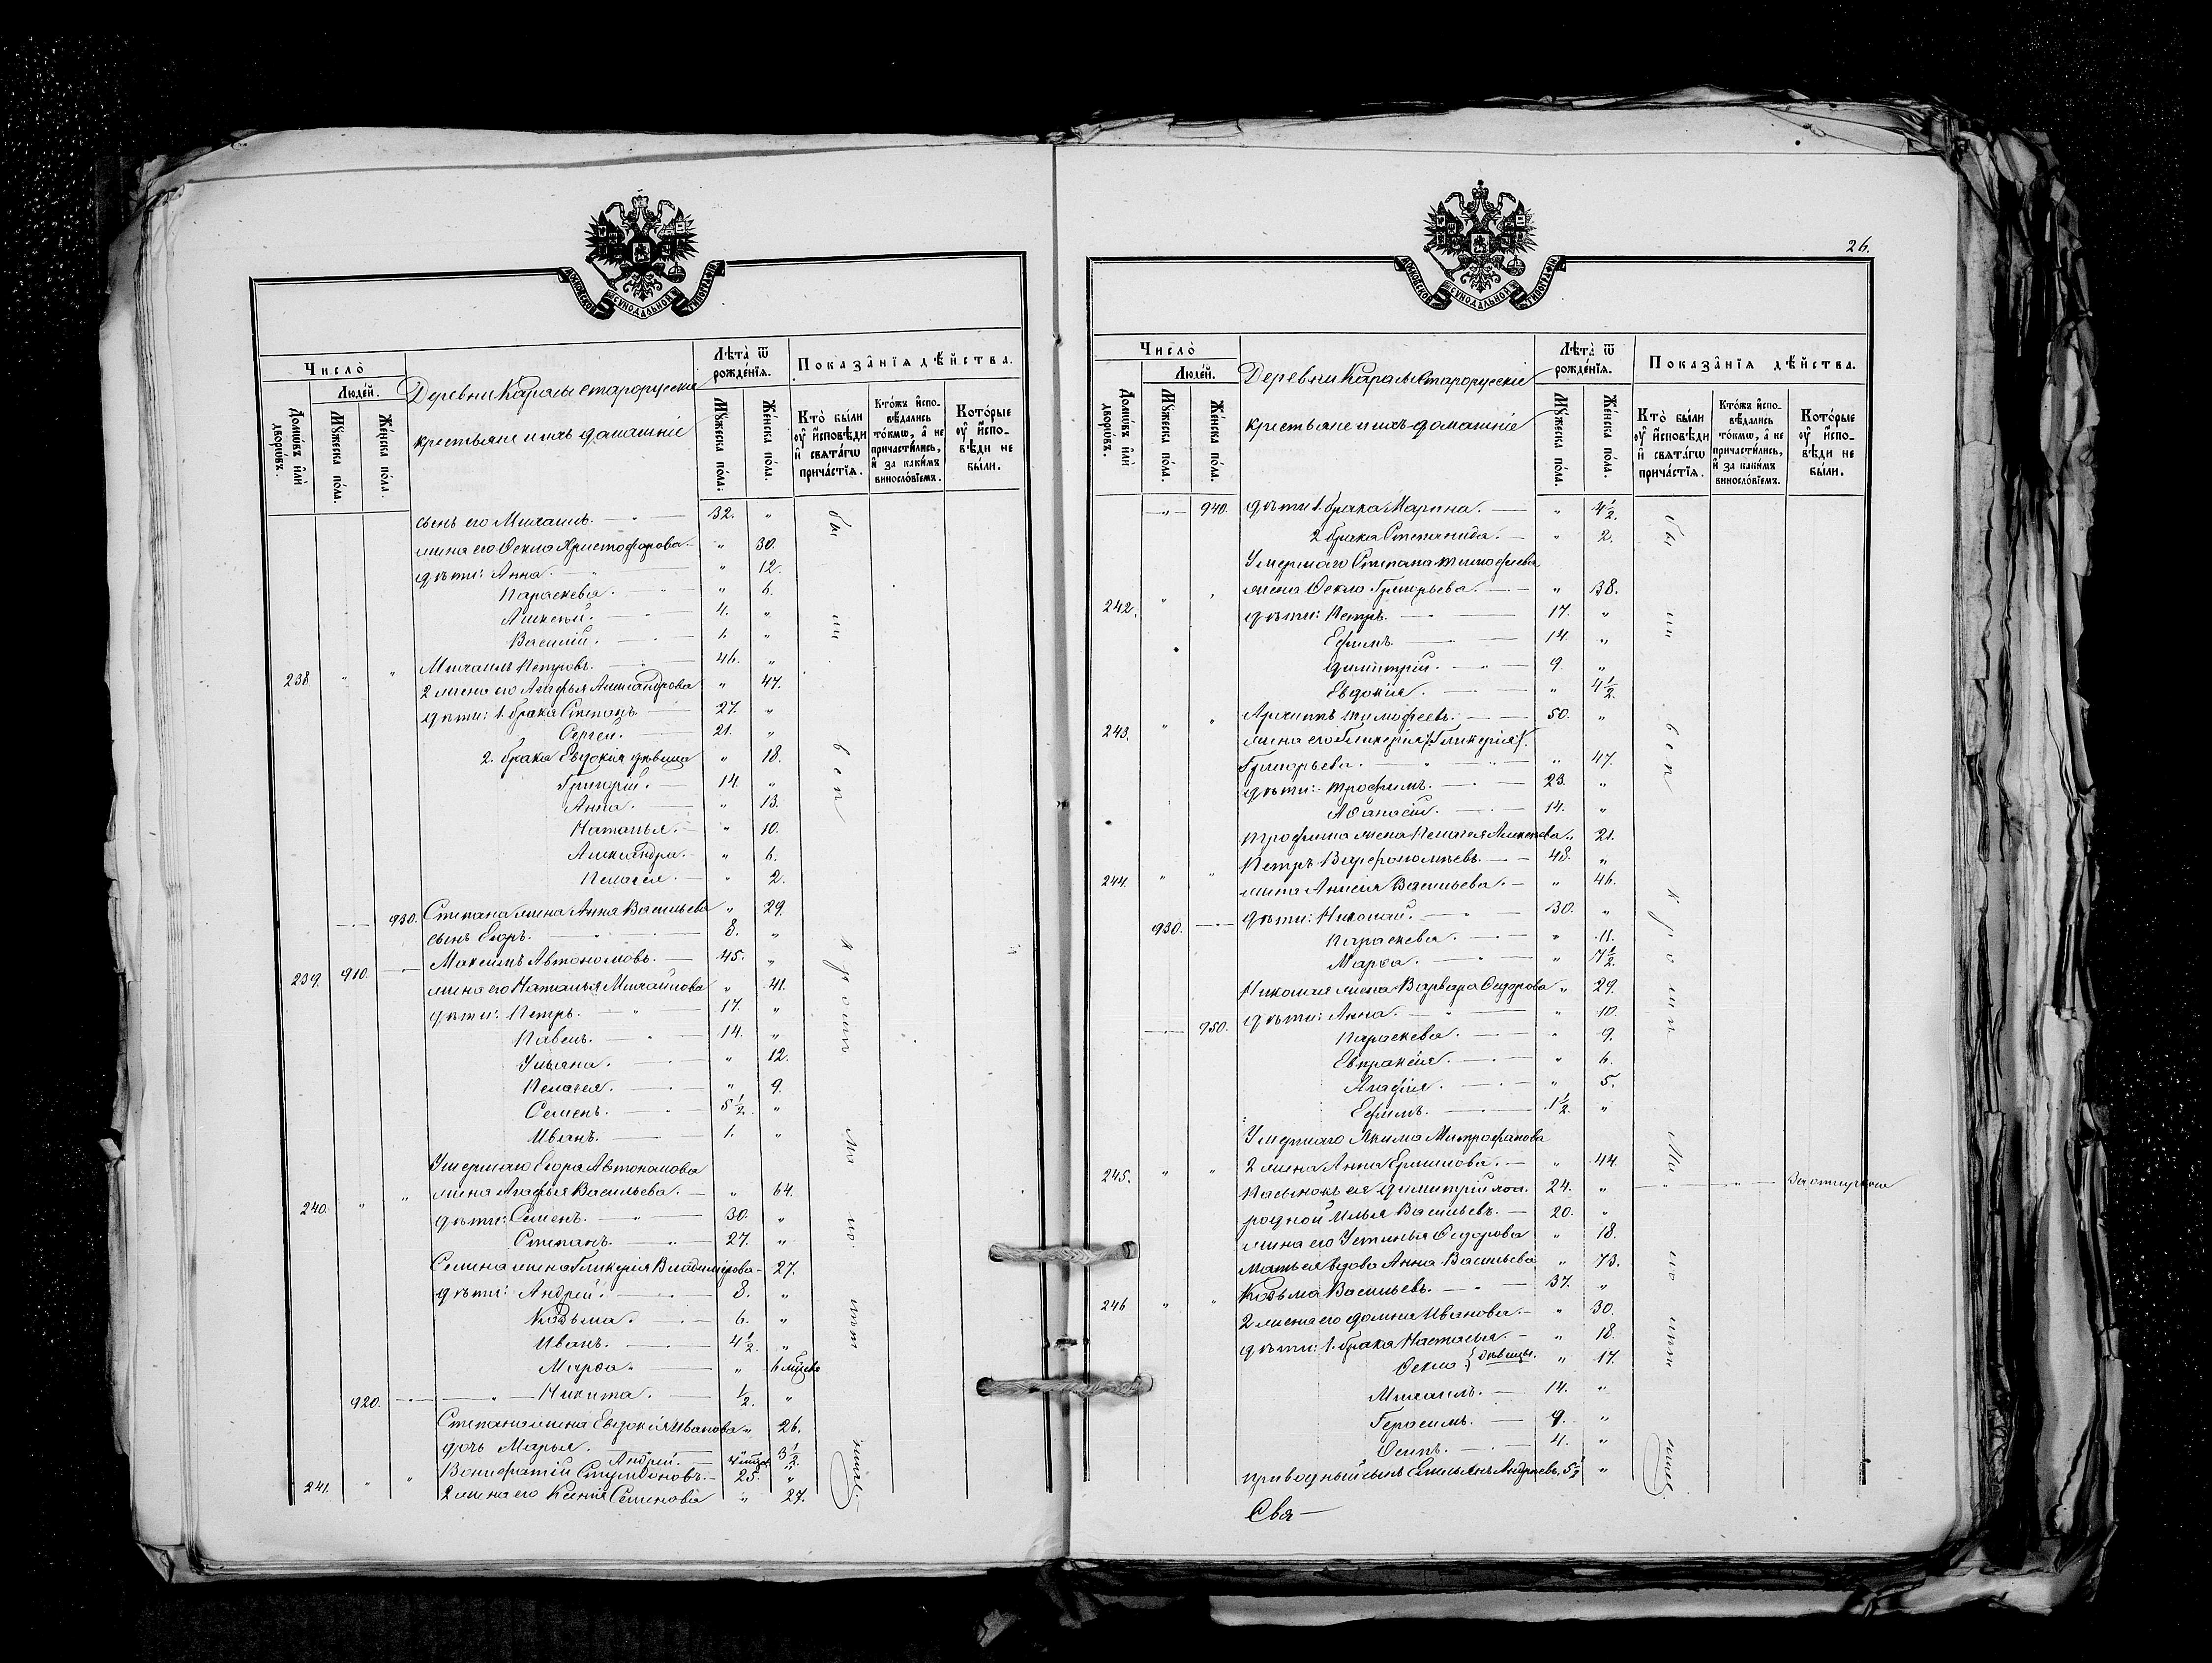 МОСКОВСКОЙ СѴНОДАЛЬНОЙ ТИПОГРАФІИ
Число̀
Людей.
Домѡвъ илѝ дворѡвъ.
Мꙋжеска по́ла.
Же́нска по́ла.
Деревни Карасы старорусскіе
крестьяне и ихъ домашніе
Лѣта̀ ѿ рожде́нїѧ.
Мꙋжеска по́ла.
Же́нска по́ла.
Показа̂нїѧ дѣ́йства.
Кто̀ бы́ли ᲂу҆ и҆́сповѣди и҆ свѧта́гѡ прича́стїѧ.
Кто́жъ и҆спо-вѣ́дались то́кмѡ, а҆ не причасти́лись, и҆ за каки́мъ винослові́емъ.
Кото́рые ᲂу҆ и҆́спо-вѣди не бы́ли.
сынъ его Михаилъ. 32. "
жена его Ѳекла Христофорова. " 30.
дѣти: Анна. " 12.
Параскева. " 6.
Алексѣй. 4. "
Василій. 1. "
238 " " Михаилъ Петровъ. 46. "
2 жена его Агафья Александрова " 47.
дѣти: 1. брака Степанъ 27. "
Сергей. 21. "
2. брака Евдокія дѣвица " 18.
Григорій. 14. "
Анна. " 13.
Наталья. " 10.
Александра. " 6.
Пелагея. " 2.
930. Степана жена Анна Васильева " 29.
сынъ Егоръ. 8. "
239. 910. Максимъ Автономовъ. 45. "
жена его Наталья Михайлова " 41.
дѣти: Петръ. 17. "
Павелъ. 14. "
Ульяна. " 12.
Пелагея. " 9.
Семенъ. 5½. "
Иванъ. 1. "
Умершаго Егора Автономова
240. " " жена Агафья Васильева. " 64.
дѣти: Семенъ. 30. "
Степанъ. 27. "
Семена жена Гликерія Владимерова 27.
дѣти: Андрей. 8. "
Козьма. 6. "
Иванъ. 4½. "
Марѳа. " 6
920. Никита. ½. "
Степана жена Евдокія Иванова " 26.
дочь Марья. 3½.
Андрей. 4
241. " " Вонифатій 25. "
2 жена его Ксенія Семенова " 27.
бы ли всп кромѣ мо ло лѣт нихъ.
26.
МОСКОВСКОЙ СѴНОДАЛЬНОЙ ТИПОГРАФІИ
Число̀
Людей.
Домѡвъ илѝ дворѡвъ.
Мꙋжеска по́ла.
Же́нска по́ла.
Деревни Карасы старорусскіе
крестьяне и ихъ домашніе
Лѣта̀ ѿ рожде́нїѧ.
Мꙋжеска по́ла.
Же́нска по́ла.
Показа̂нїѧ дѣ́йства.
Кто̀ бы́ли ᲂу҆ и҆́сповѣди и҆ свѧта́гѡ прича́стїѧ.
Кто́жъ и҆спо-вѣ́дались то́кмѡ, а҆ не причасти́лись, и҆ за каки́мъ винослові́емъ.
Кото́рые ᲂу҆ и҆́спо-вѣди не бы́ли.
940. дѣти 1. брака Марина. " 4½.
2 брака Степанида. " 2.
Умершаго Степана Тимофеева
242. " " жена Ѳекла Григорьева. " 38.
дѣти: Петръ. 17. "
Ефимъ. 14. "
Димитрій. 9 "
Евдокія. " 4½.
243. " " Архипъ Тимофеевъ. 50. "
жена его Гликерія /Гликерія/.
Григорьева. " 47.
дѣти: Трофимъ. 23. "
Аѳанасій. 14. "
Трофима жена Пелагея Алексѣева " 21.
244. " " Петръ Варфоломѣевъ. 48. "
жена Анисія Васильева. " 46.
930. дѣти: Николай. 30. "
Параскева. " 11.
Марѳа. " 7½.
Николая жена Варвара Ѳедорова " 29.
950. дѣти: Анна. " 10.
Параскева. " 9.
Евпраксія. " 6.
Агафія. " 5.
Ефимъ. 1½. "
Умершаго Якима Митрофанова
245. " " 2 жена Анна Ермилова. " 44.
Пасынокъ ея Димитрій 24. "
родной Илья Васильевъ. 20. "
жена его Устинья Ѳедорова " 18.
мать ея вдова Анна Васильева " 73.
246 " " Козьма Васильевъ. 37. "
2 жена его Домна Иванова. " 30.
дѣти: 1. брака Настасья. " 18.
Ѳекла } дѣвицы. " 17.
Михаилъ. 14. "
Герасимъ. 9. "
Осипъ. 4. "
приводный сынъ Емельянъ Андреевъ. 5½ "
бы ли всп кромѣ мо ло лѣт нихъ.
Свя—